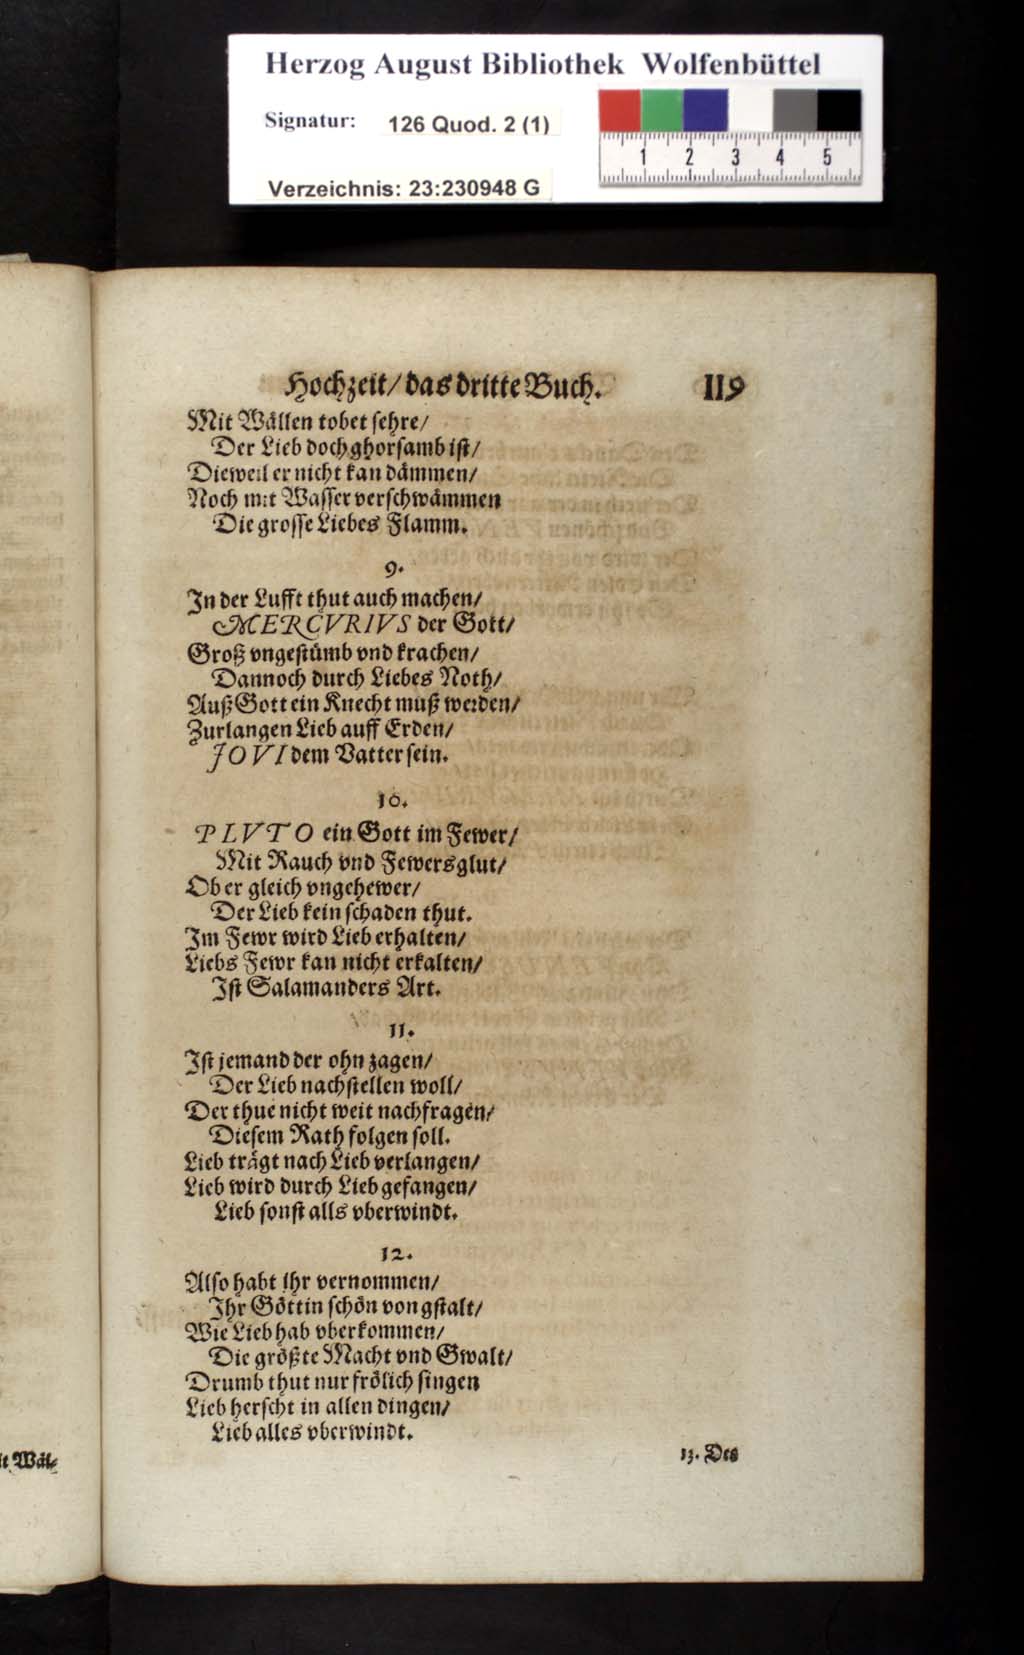 Herzog August Bibliothek Wolfenbüttel
Signatur: 126 Quod. 2 (1)
1 2 3 4 5
Verzeichnis: 23:230948 G
Hochzeit/ das dritte Buch. 119
Mit Wällen tobet sehre/
Der Lieb doch ghorsamb ist/
Dieweil er nicht kan dämmen/
Noch mit Wasser verschwämmen
Die grosse Liebes Flamm.
9.
In der Lufft thut auch machen/
MERCVRIVS der Gott/
Groß vngestümb vnd krachen/
Dannoch durch Liebes Noth/
Auß Gott ein Knecht muß werden/
Zurlangen Lieb auff Erden/
JOVI dem Vatter sein.
10.
PLVTO ein Gott im Fewer/
Mit Rauch vnd Fewersglut/
Ob er gleich vngehewer/
Der Lieb kein schaden thut.
Im Fewr wird Lieb erhalten/
Liebs Fewr kan nicht erkalten/
Ist Salamanders Art.
11.
Ist jemand der ohn zagen/
Der Lieb nachstellen woll/
Der thue nicht weit nachfragen/
Diesem Rath folgen soll.
Lieb trägt nach Lieb verlangen/
Lieb wird durch Lieb gefangen/
Lieb sonst alls vberwindt.
12.
Also habt ihr vernommen/
Ihr Göttin schön von gstalt/
Wie Lieb hab vberkommen/
Die größte Macht vnd Gwalt/
Drumb thut nur frölich singen
Lieb herscht in allen dingen/
Lieb alles vberwindt.
13. Des
it Wäl-